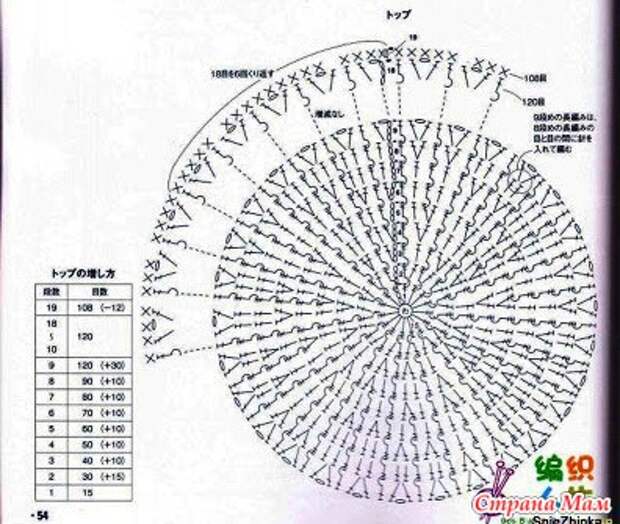 トップ
18目を6回くり返す
19
18
108目
120目
増減なし
9段めの長編みは、
8段めの長編みの
目と目の間に針を
入れて編む
トップの増し方
段数 目数
19 108 (-12)
18
〜
10 120
9 120 (+30)
8 90 (+10)
7 80 (+10)
6 70 (+10)
5 60 (+10)
4 50 (+10)
3 40 (+10)
2 30 (+15)
1 15
54
编织
Страна Мам
SnigZhinka